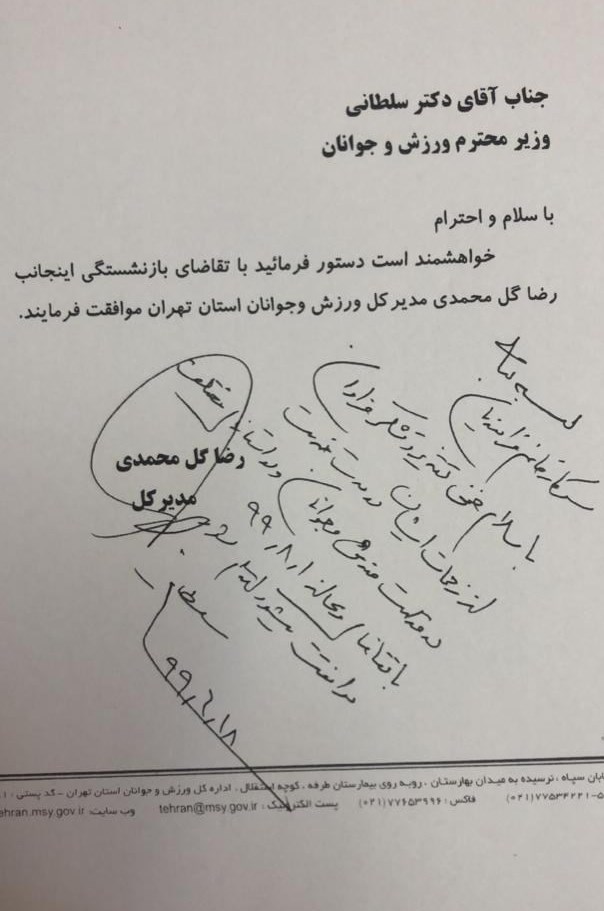 جناب آقای دکتر سلطانی
وزیر محترم ورزش و جوانان
با سلام و احترام
خواهشمند است دستور فرمائید با تقاضای بازنشستگی اینجانب
رضا گل محمدی مدیر کل ورزش وجوانان استان تهران موافقت فرمایند.
رضا گل محمدی
مدیر کل
سرکار خانم
با سلام ضمن تقدیر و تشکر فراوان
از زحمات ایشان در مدت خدمت
در وزارت ورزش و جوانان و
با تقاضای از ۹۹,۸,۱
موافقت میشود
۹۹,۶,۱۸
نرسیده به میدان بهارستان ، روبه روی بیمارستان طرفه ، کوچه استقلال ، اداره کل ورزش و جوانان استان تهران - کد پستی :
فاکس : ۷۷۶۵۳۹۹۶ (۰۲۱) پست الکترونیک : tehran@msy.gov.ir وب سایت : tehran.msy.gov.ir